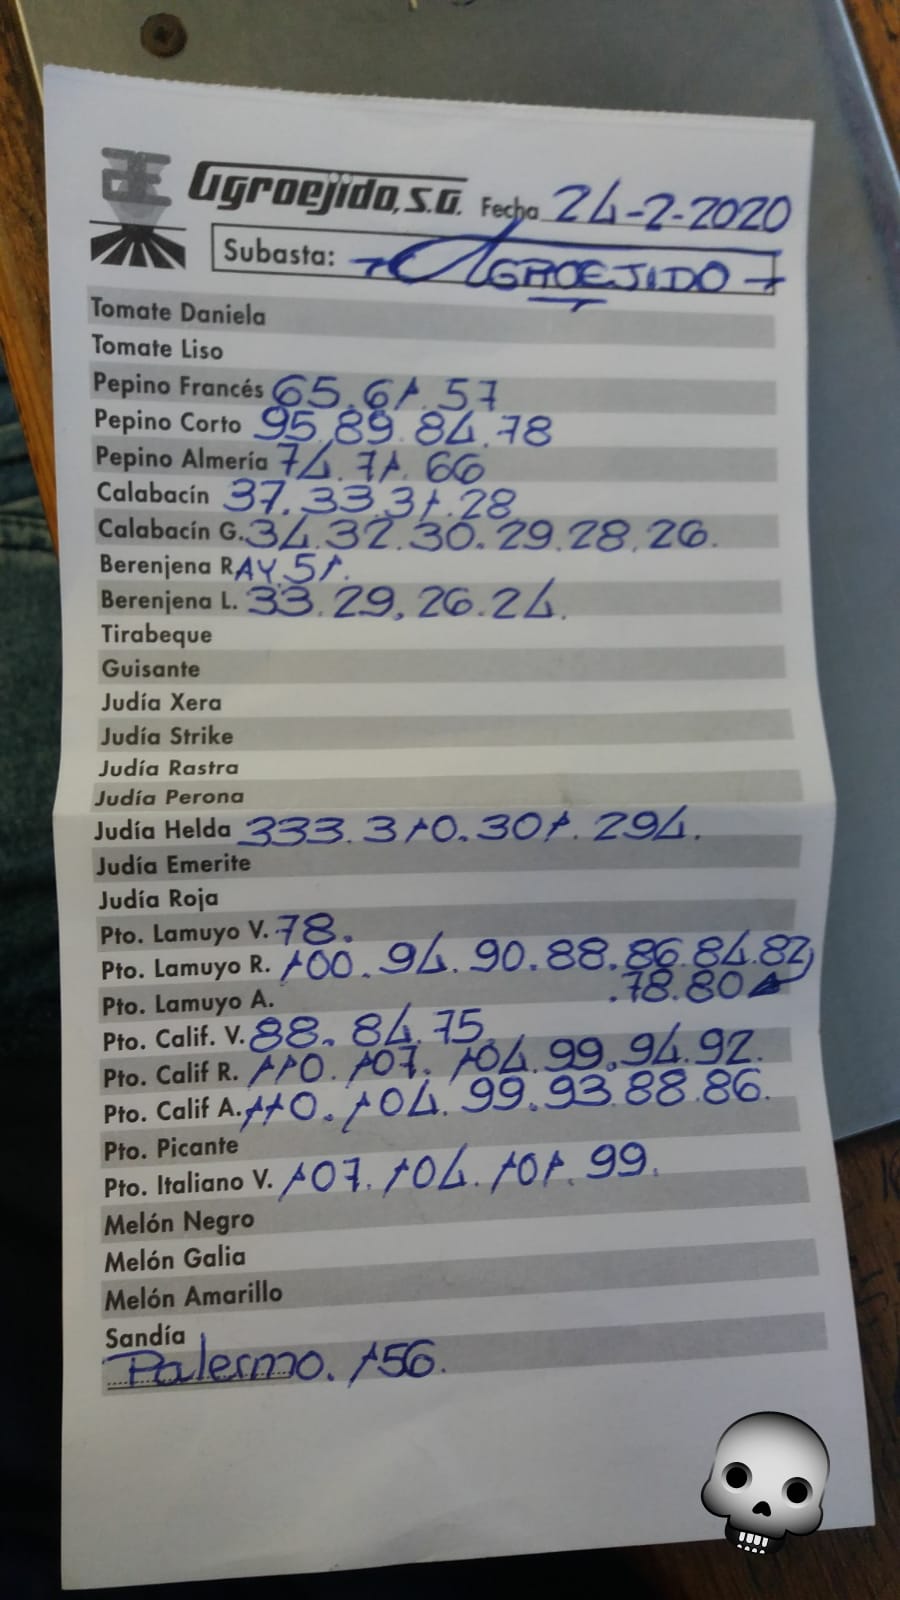 Agroejido, S.A. Fecha 24-2-2020
Subasta: AGROEJIDO
Tomate Daniela
Tomate Liso
Pepino Francés 65.61.57
Pepino Corto 95.89.84.78
Pepino Almería 74.71.66
Calabacín 37.33.31.28
Calabacín G. 34.32.30.29.28.26.
Berenjena RAY 51.
Berenjena L. 33.29.26.24.
Tirabeque
Guisante
Judía Xera
Judía Strike
Judía Rastra
Judía Perona
Judía Helda 333.310.301.294.
Judía Emerite
Judía Roja
Pto. Lamuyo V. 78.
Pto. Lamuyo R. 100.94.90.88.86.84.82
.78.80
Pto. Lamuyo A.
Pto. Calif. V. 88.84.75
Pto. Calif R. 110.107.104.99.94.92.
Pto. Calif A. 110.104.99.93.88.86.
Pto. Picante
Pto. Italiano V. 107.104.101.99.
Melón Negro
Melón Galia
Melón Amarillo
Sandía
Palermo. 156.